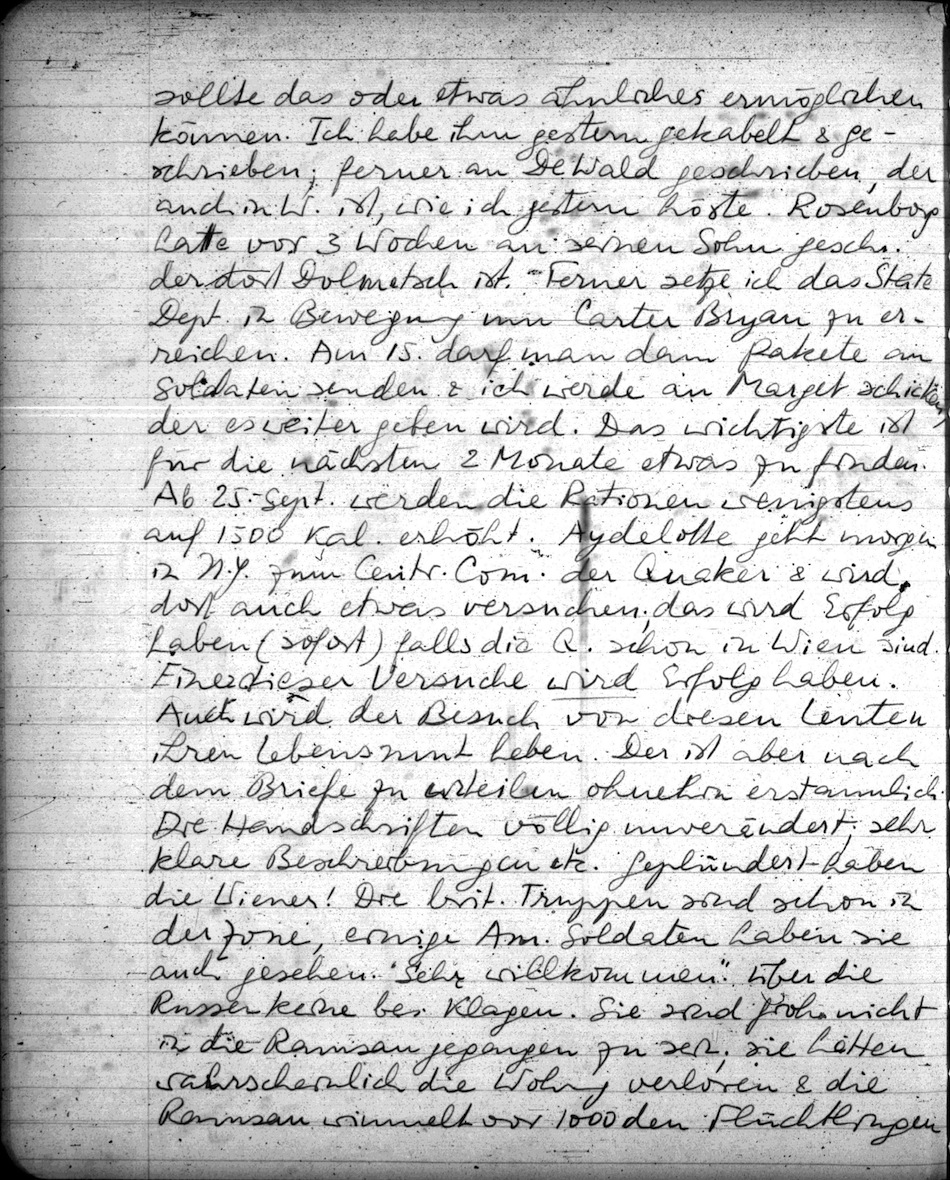 sollte das oder etwas ähnliches ermöglichen
können. Ich habe ihm gestern gekabelt & ge-
schrieben; ferner an DeWald geschrieben, der
auch in W. ist, wie ich gestern hörte. Rosenborg
hatte vor 3 Wochen an seinen Sohn geschr.
der dort Dolmetsch ist. Ferner setze ich das State
Dept. in Bewegung um Carter Bryan zu er-
reichen. Am 15. darf man dann Pakete an
Soldaten senden & ich werde an Marget schicken,
der es weiter geben wird. Das wichtigste ist
für die nächsten 2 Monate etwas zu finden.
Ab 25. Sept. werden die Rationen wenigstens
auf 1500 Kal. erhöht. Aydelotte geht morgen
in N.Y. zum Centr. Com. der Quaker & wird
dort auch etwas versuchen; das wird Erfolg
haben (sofort) falls die Q. schon in Wien sind.
Einer dieser Versuche wird Erfolg haben.
Auch wird der Besuch von diesen Leuten
ihren Lebensmut heben. Der ist aber nach
dem Briefe zu urteilen ohnehin erstaunlich.
Die Handschriften völlig unverändert; sehr
klare Beschreibungen etc. Geplündert haben
die Wiener! Die brit. Truppen sind schon in
der Zone, einige Am. Soldaten haben sie
auch gesehen. "Sehr willkommen". Über die
Russen keine bes. Klagen. Sie sind froh nicht
in die Ramsau gegangen zu sein; sie hätten
wahrscheinlich die Wohng verloren & die
Ramsau wimmelt vor 1000den Flüchtlingen